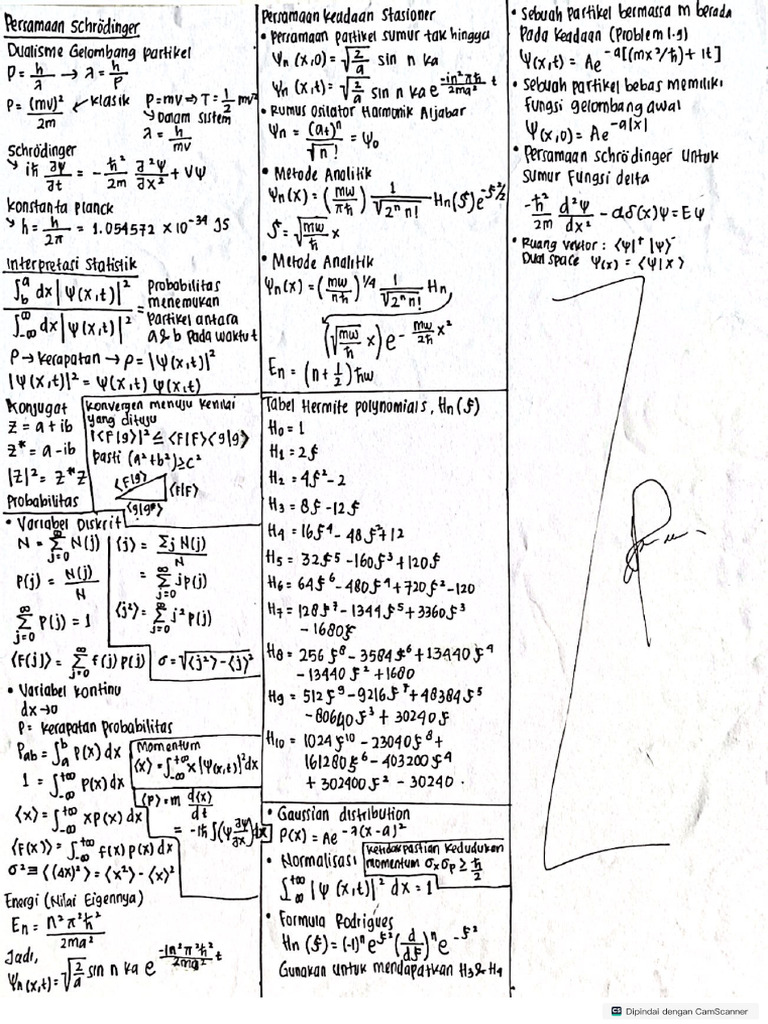 Persamaan Schrödinger
Dualisme Gelombang partikel
P = h/λ → λ = h/P
P = (mv)²/2m ↙ klasik P = mv ⇒ T = 1/2 mv²
↘ Dalam sistem
λ = h/mv
Schrödinger
↘ iħ ∂Ψ/∂t = -ħ²/2m ∂²Ψ/∂x² + VΨ
Konstanta Planck
↘ ħ = h/2π = 1.054572 × 10⁻³⁴ JS
Interpretasi Statistik
∫_b^a dx|Ψ(x,t)|² / ∫_-∞^∞ dx|Ψ(x,t)|² =
Probabilitas
menemukan
Partikel antara
a & b pada waktu t
ρ → kerapatan → ρ = |Ψ(x,t)|²
|Ψ(x,t)|² = Ψ(x,t) Ψ(x,t)
Konjugat
z = a + ib
z* = a - ib
|z|² = z* z
konvergen menuju kenilai
yang dituju
|<F|g>|² ≤ <F|F><g|g>
pasti (a²+b²) ≥ c²
<F|g>
<F|F>
<g|g>
Probabilitas
• Variabel Diskrit
N = Σ_{j=0}^∞ N(j)
P(j) = N(j)/N
Σ_{j=0}^∞ P(j) = 1
<j> = Σj N(j)/N
= Σ_{j=0}^∞ j p(j)
<j²> = Σ_{j=0}^∞ j² p(j)
<F(j)> = Σ_{j=0}^∞ f(j) p(j)
σ = √<j²> - <j>²
• Variabel kontinu
dx → 0
P = kerapatan probabilitas
P_ab = ∫_a^b P(x) dx
1 = ∫_-∞^+∞ P(x) dx
<x> = ∫_-∞^+∞ x P(x) dx
<f(x)> = ∫_-∞^+∞ f(x) P(x) dx
σ² ≡ <(Δx)²> = <x²> - <x>²
Momentum
<x> = ∫_-∞^+∞ x|Ψ(x,t)|² dx
<P> = m d<x>/dt
= -iħ ∫(Ψ ∂Ψ/∂x) dx
Energi (Nilai Eigennya)
En = n²π²ħ²/2ma²
Jadi,
Ψn(x,t) = √2/a sin n ka e^(-in²π²ħ²/2ma² t)
Persamaan Keadaan Stasioner
• Persamaan partikel sumur tak hingga
Ψn(x,0) = √2/a sin n ka
Ψn(x,t) = √2/a sin n ka e^(-in²πħ/2ma² t)
• Rumus Osilator Harmonik Aljabar
Ψn = (a+)^n/√n! = Ψ0
• Metode Analitik
Ψn(x) = (mw/πħ) 1/√2ⁿ n! Hn(ξ) e^(-ξ²/2)
ξ = √mw/ħ x
• Metode Analitik
Ψn(x) = (mw/πħ)^1/4 1/√2ⁿ n! Hn
(√mw/ħ x) e^(- mw/2ħ x²)
En = (n + 1/2) ħw
Tabel Hermite polynomials, Hn(ξ)
H0 = 1
H1 = 2ξ
H2 = 4ξ² - 2
H3 = 8ξ - 12ξ
H4 = 16ξ⁴ - 48ξ² + 12
H5 = 32ξ⁵ - 160ξ³ + 120ξ
H6 = 64ξ⁶ - 480ξ⁴ + 720ξ² - 120
H7 = 128ξ⁷ - 1344ξ⁵ + 3360ξ³
- 1680ξ
H8 = 256ξ⁸ - 3584ξ⁶ + 13440ξ⁴
- 13440ξ² + 1680
H9 = 512ξ⁹ - 9216ξ⁷ + 48384ξ⁵
- 80640ξ³ + 30240ξ
H10 = 1024ξ¹⁰ - 23040ξ⁸ +
161280ξ⁶ - 403200ξ⁴
+ 302400ξ² - 30240.
• Gaussian distribution
P(x) = Ae^(-λ(x-a)²)
• Normalisasi
ketidakpastian kedudukan
momentum σxσp ≥ ħ/2
∫_-∞^+∞ |Ψ(x,t)|² dx = 1
• Formula Rodrigues
Hn(ξ) = (-1)ⁿ e^(ξ²) (d/dξ)ⁿ e^(-ξ²)
Gunakan untuk mendapatkan H3 & H4
• Sebuah partikel bermassa m berada
Pada Keadaan (Problem 1.9)
Ψ(x,t) = Ae^(-a[(mx²/ħ)+it])
• sebuah partikel bebas memiliki
fungsi gelombang awal
Ψ(x,0) = Ae^(-a|x|)
• Persamaan schrödinger untuk
sumur fungsi delta
-ħ²/2m d²Ψ/dx² - αδ(x)Ψ = EΨ
• Ruang vektor : <Ψ|⁺ |Ψ>
Dual space Ψ(x) = <Ψ|x>
CS Dipindai dengan CamScanner